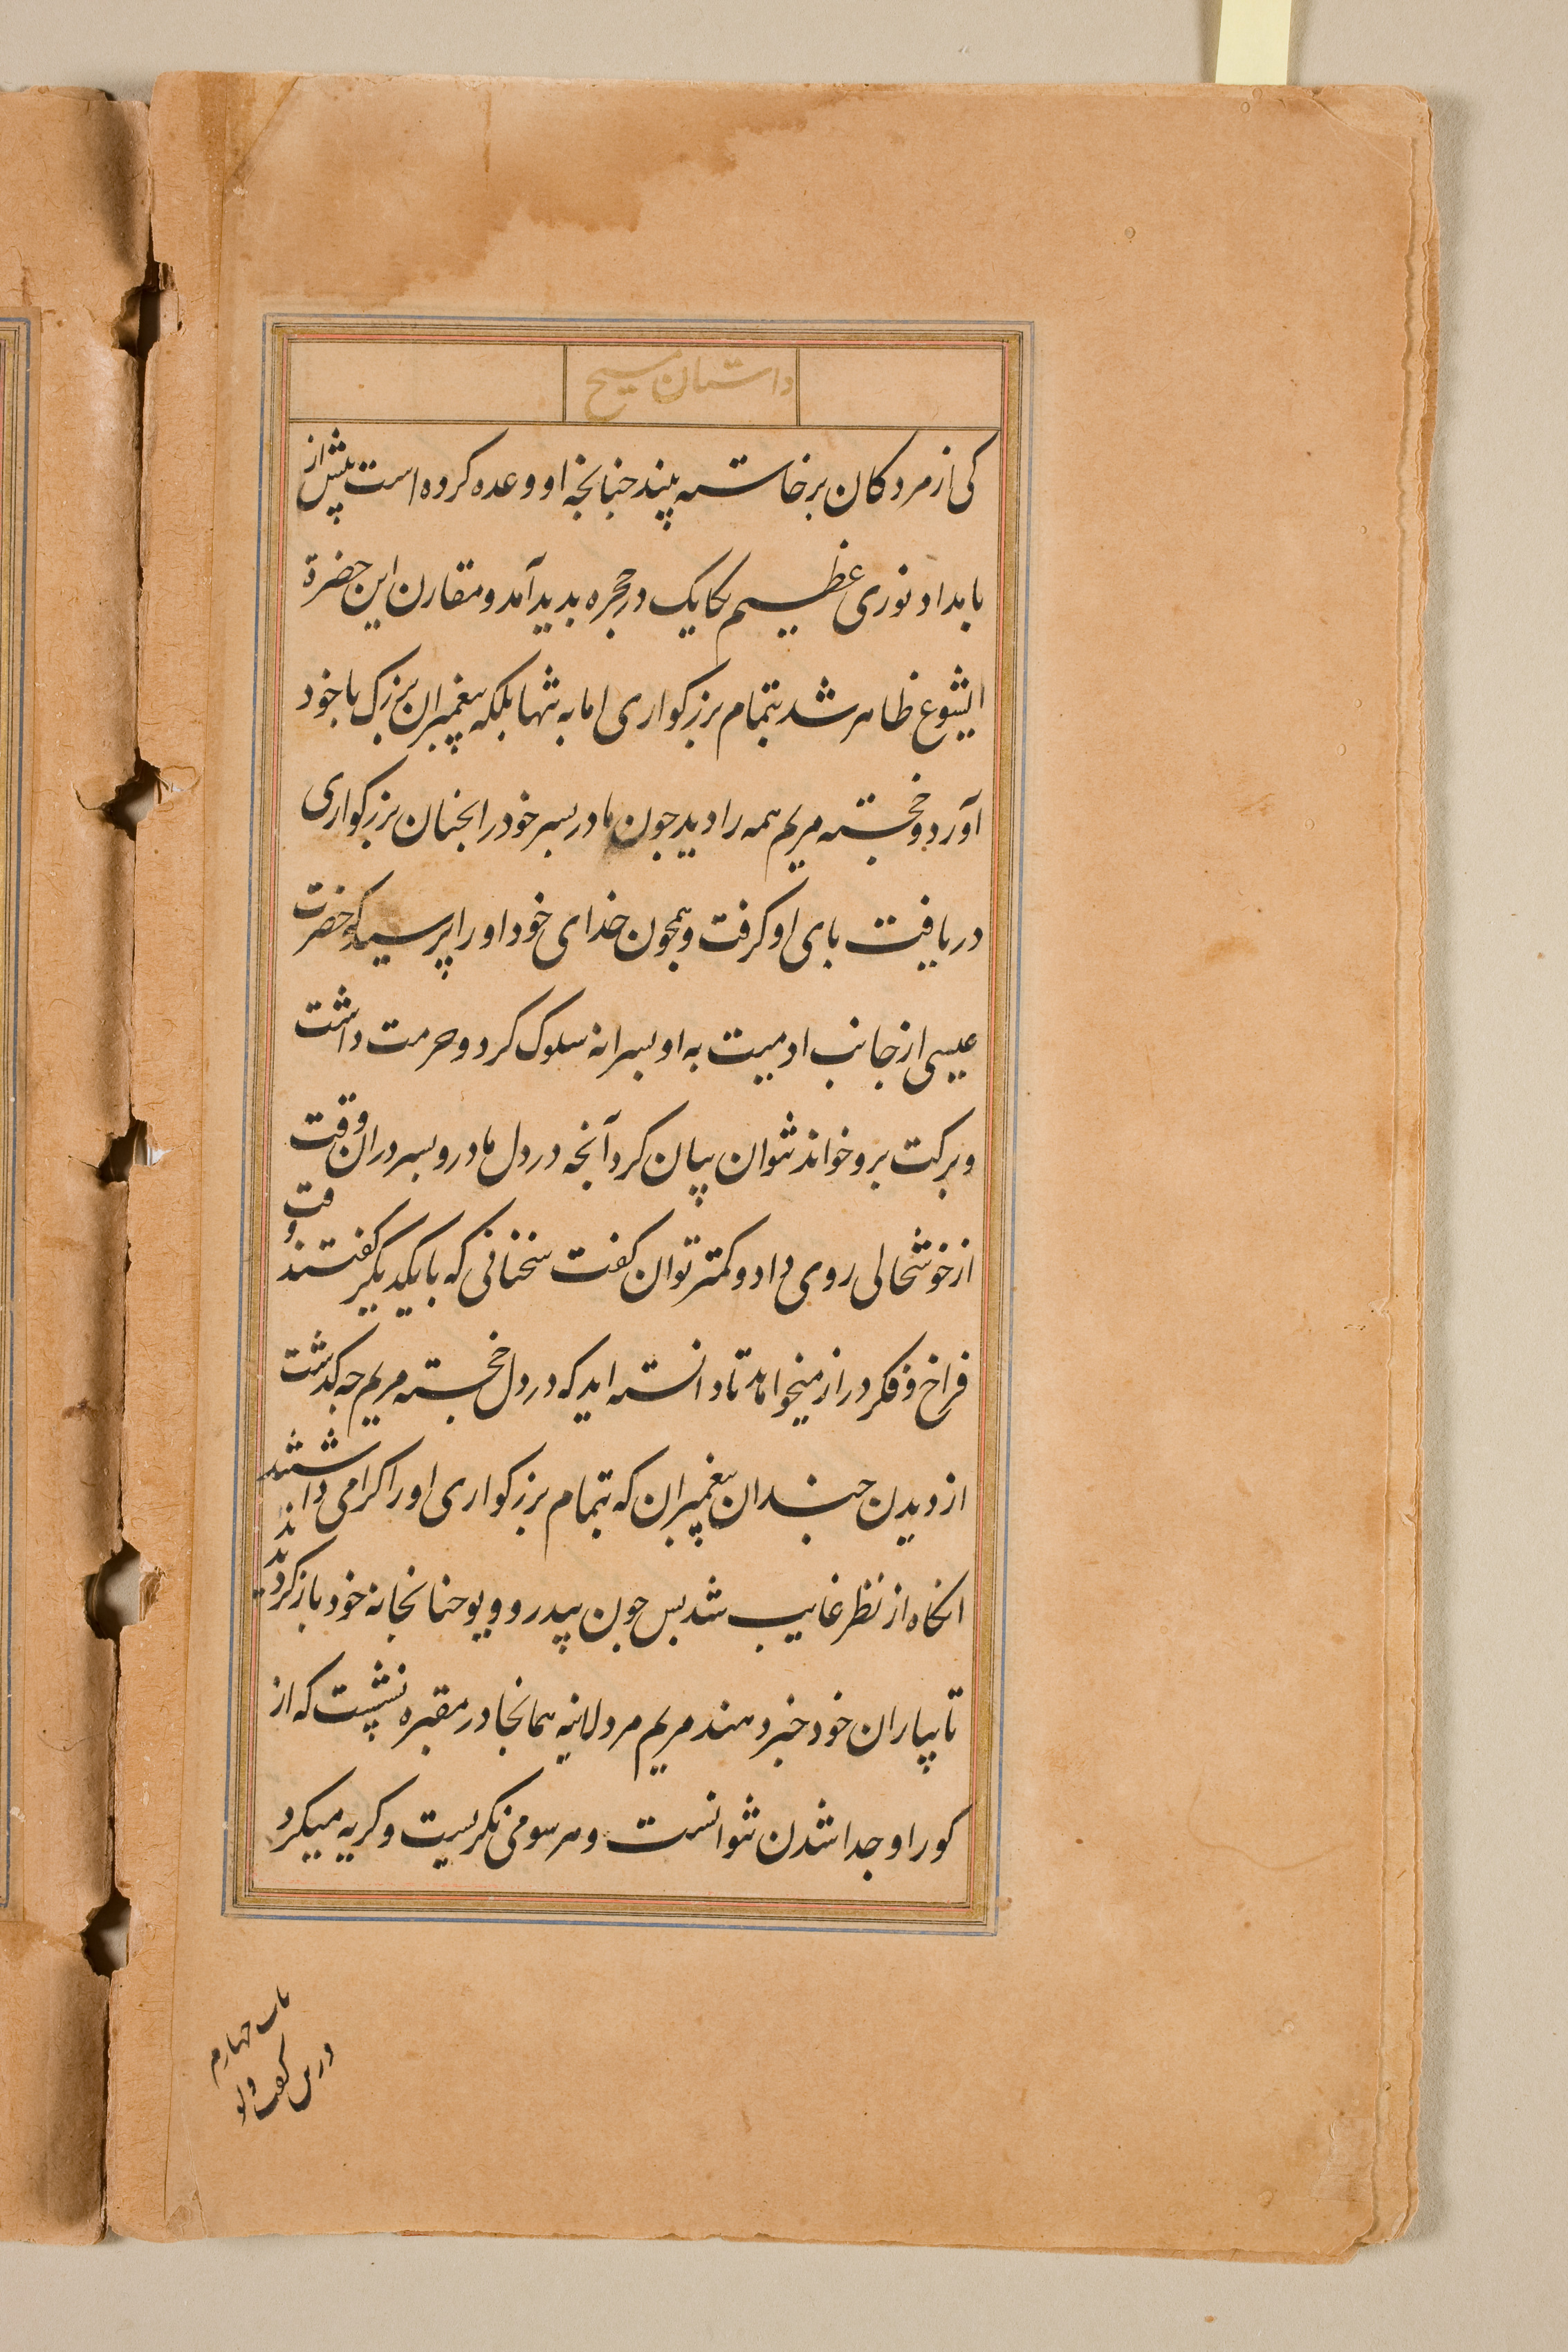 داستان مسیح
کی از مردکان برخاسته بیند جنانجه او وعده کرده است بیش از
بامداد نوری عظیم یکایک در حجره بدید آمد و مقارن این حضرة
ایشوع ظاهر شد بتمام بزرکواری اما به تنها بلکه پیغمبران بزرک با خود
آورد و خجسته مریم همه را دید جون مادر بسر خود را بجنان بزرکواری
دریافت بای او کرفت و همجون خدای خود او را پرسید که حضرت
عیسی از جانب ادمیت به او بسرانه سلوک کرد و حرمت داشت
و برکت برو خواند نتوان بیان کرد آنجه در دل مادر و بسر در ان وقت
از خوشحالی روی داد و کمتر توان کفت سخنانی که با یکدیکر کفتند وقت
فراخ و فکر دراز میخواهد تا دانسته اید که در دل خجسته مریم جه کذشت
از دیدن جندان پیغمبران که بتمام بزرکواری او را کرامی داشتند
انکاه از نظر غایب شد بس جون پیدرو و یوحنا بخانه خود باز کردیدند
تا بیاران خود خبر دهند مریم مردلانیه همانجا در مقبره نشست که از
کور او جدا شدن نتوانست و هر سو می نکریست و کریه میکرد
باب چهارم